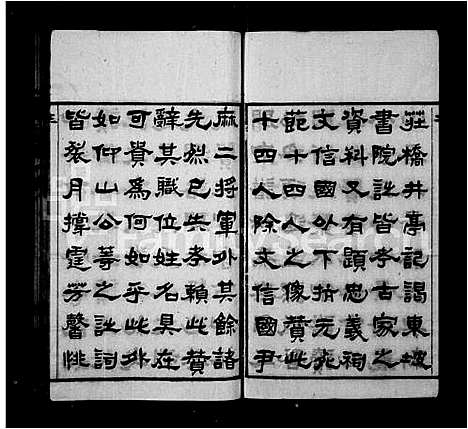 莊橋井亭記謁東坡
書院註皆考古家之
資料又有題忠義祠
文信國外下揹元兆
範十四人之像贊此
十四人除文信國尹
麻二將軍外其餘諸
先烈已失考賴此贊
辭其職位姓名具在
可貴為何如乎此外
如仰山公等之註詞
皆裁月撐霆芳聲眺
FamilySearch